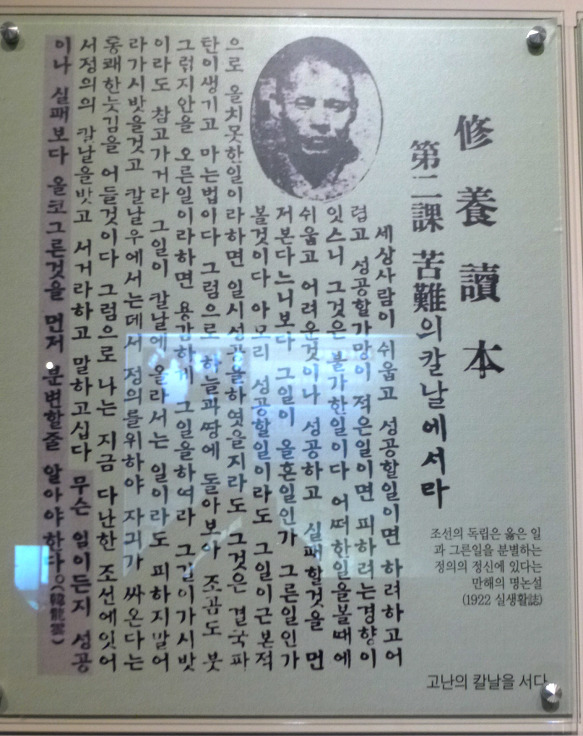 修養讀本
第二課 苦難의칼날에서라
세상사람이쉬웁고 성공할일이면 하려하고어
렵고 성공할가망이 적은일이면 피하려는경향이
잇스니 그것은 불가한일이다 어떠한일을볼때에
쉬웁고 어려운것이나 성공하고 실패할것을 먼
저본다느니보다 그일이 올흔일인가 그른일인가
볼것이다 아모리 성공할일이라도 그일이근본적
으로 올치못한일이라하면 일시성공을하엿을지라도 그것은 결국파
탄이생기고 마는법이다 그럼으로 하늘과땅에 돌아보아 조곰도 붓
그럽지안을 오른일이라하면 용감하게 그일을하여라 그길이가시밧
이라도 참고가거라 그일이 칼날에 올라서는 일이라도 피하지말어
라가시밧을것고 칼날우에서는데서 정의를위하야 자긔가 싸온다는
통쾌한늣김을 어들것이다 그럼으로 나는 지금 다난한 조선에잇어
서정의의 칼날을밧고 서거라하고 말하고십다 무슨 일이든지 성공
이나 실패보다 올코그른것을 먼저 분변할줄 알아야한다 (韓龍雲)
조선의 독립은 옳은 일
과 그른일을 분별하는
정의의 정신에 있다는
만해의 명논설
(1922 실생활誌)
고난의 칼날을 서다